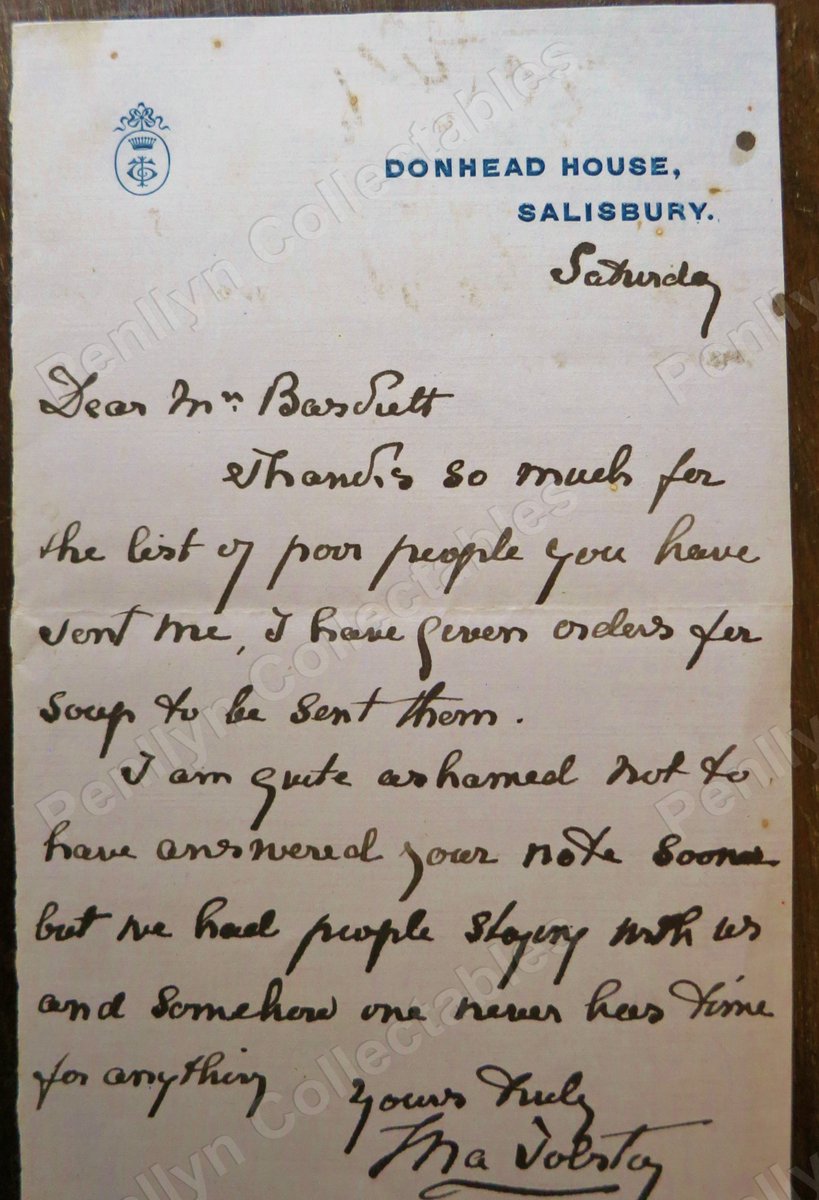 DONHEAD HOUSE,
SALISBURY.
Saturday
Dear Mrs
Thanks so much for
the list of poor people you have
sent me, I have given orders for
soup to be sent them.
I am quite ashamed not to
have answered your note sooner
but we had people staying with us
and somehow one never has time
for anything
Yours truly
Tolstoy
Penllyn Collectables